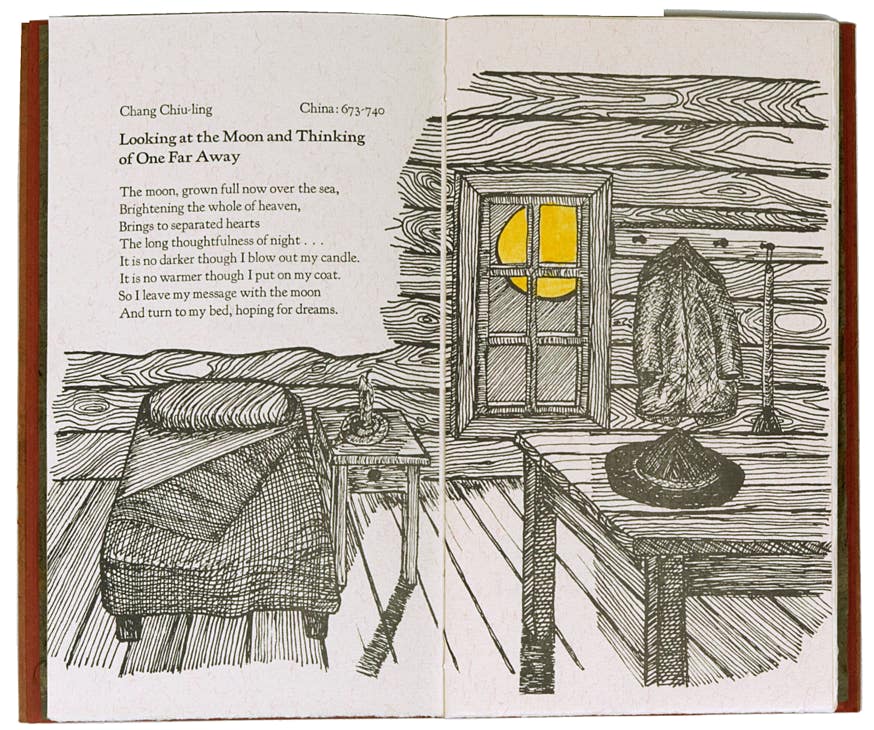 Chang Chiu-ling China: 673-740
Looking at the Moon and Thinking
of One Far Away
The moon, grown full now over the sea,
Brightening the whole of heaven,
Brings to separated hearts
The long thoughtfulness of night . . .
It is no darker though I blow out my candle.
It is no warmer though I put on my coat.
So I leave my message with the moon
And turn to my bed, hoping for dreams.